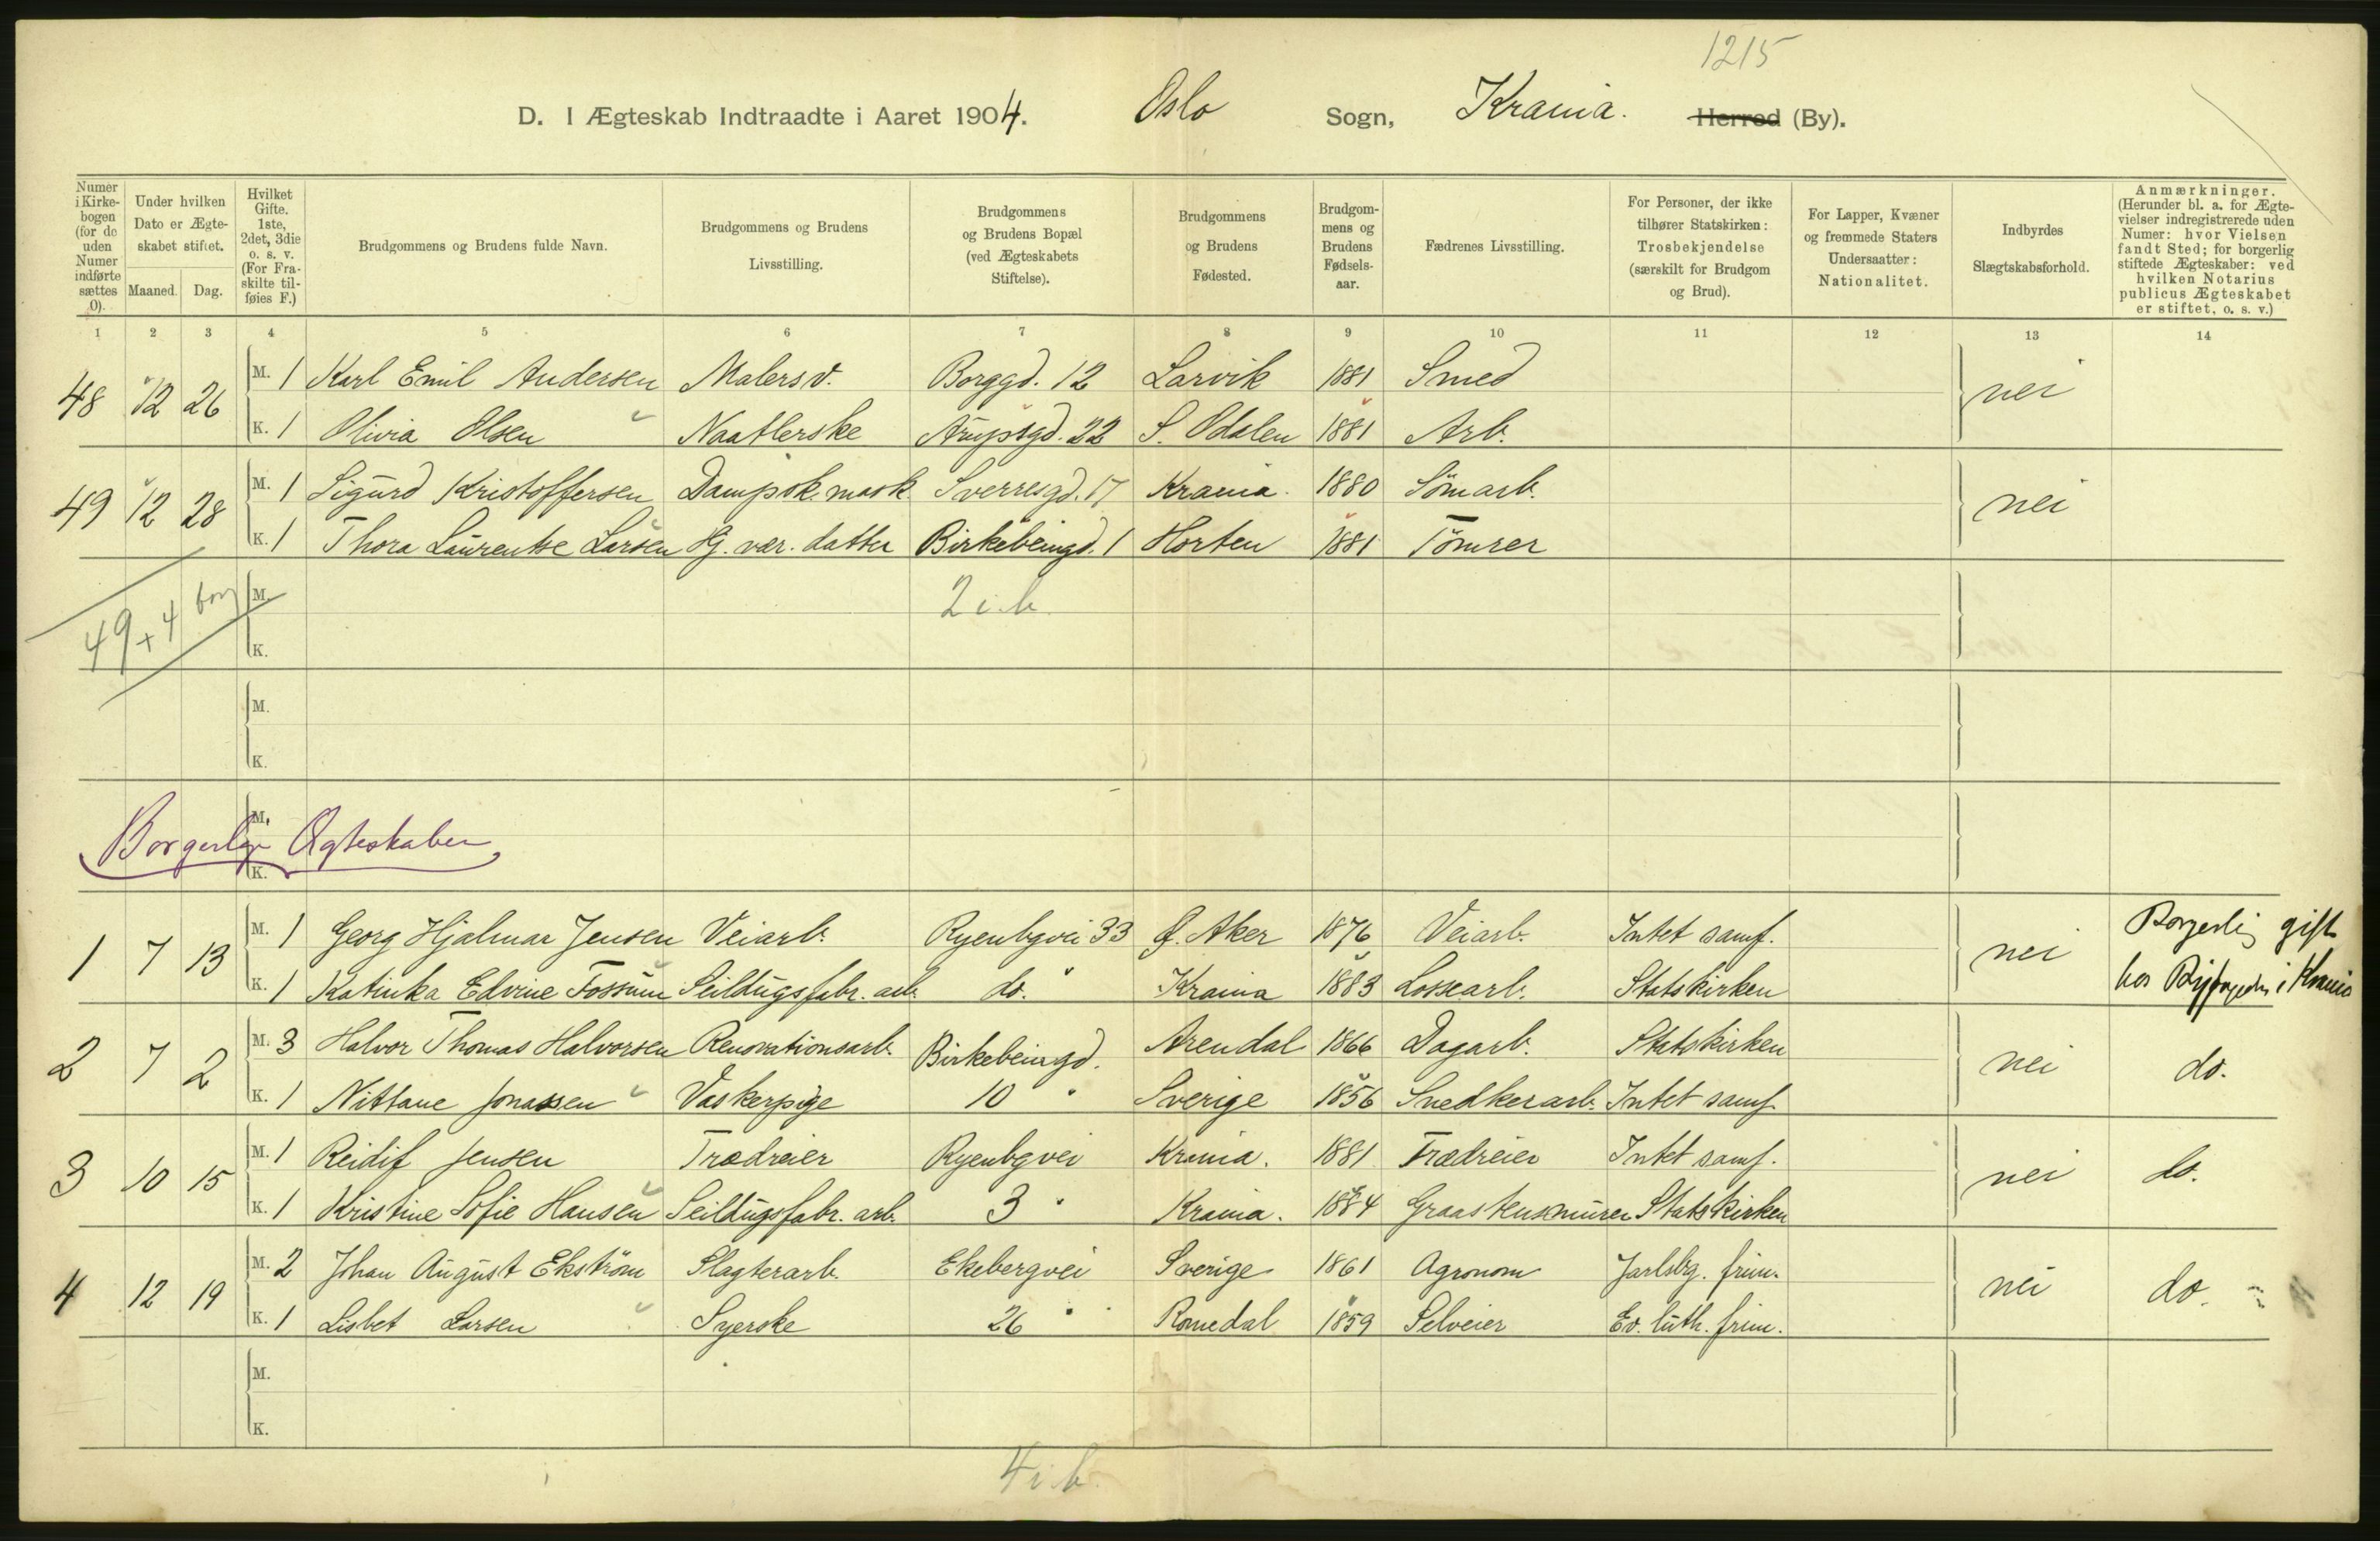 1215
D. I Ægteskab Indtraadte i Aaret 1904. Oslo Sogn, Krania. Herred (By).
Numer i Kirkebogen (for de uden Numer indførte sættes 0).
Under hvilken Dato er Ægteskabet stiftet.
Maaned. Dag.
Hvilket Gifte. 1ste, 2det, 3die o. s. v. (For Fraskilte tilføies F.)
Brudgommens og Brudens fulde Navn.
Brudgommens og Brudens Livsstilling.
Brudgommens og Brudens Bopæl (ved Ægteskabets Stiftelse).
Brudgommens og Brudens Fødested.
Brudgommens og Brudens Fødselsaar.
Fædrenes Livsstilling.
For Personer, der ikke tilhører Statskirken: Trosbekjendelse (særskilt for Brudgom og Brud).
For Lapper, Kvæner og fremmede Staters Undersaatter: Nationalitet.
Indbyrdes Slægtskabsforhold.
Anmærkninger. (Herunder bl. a. for Ægtevielser indregistrerede uden Numer: hvor Vielsen fandt Sted; for borgerlig stiftede Ægteskaber: ved hvilken Notarius publicus Ægteskabet er stiftet, o. s. v.)
1 2 3 4 5 6 7 8 9 10 11 12 13 14
48 12 26 M. 1 Karl Emil Andersen Malersv. Borggd. 12 Larvik 1881 Smed nei
K. 1 Olivia Olsen Naatlerske Arupsgd. 22 S. Odalen 1881 Arb.
49 12 28 M. 1 Sigurd Kristoffersen Dampsk. mask Sverresgd. 17 Krania. 1880 Sömarb. nei
K. 1 Thora Laurentse Larsen Hj. vær. datter Birkebeingd. 1 Horten 1881 Tömrer
49 + 4 borg M. 2 i.b.
K.
M.
K.
M.
Borgerlige Ægteskaber
K.
1 7 13 M. 1 Georg Hjalmar Jensen Veiarb. Ryenbgvei 33 Ø. Aker 1876 Veiarb. Intet samf. nei Borgerlig gift
K. 1 Katinka Edvine Fossum Seildugsfabr. arb. do. Krania 1883 Lossearb. Statskirken hos Byfogden i Krania
2 7 2 M. 3 Halvor Thomas Halvorsen Renovationsarb. Birkebeingd. Arendal 1866 Dagarb. Statskirken nei do.
K. 1 Nittane Jonassen Vaskerpige 10 Sverige 1856 Snedkerarb. Intet samf.
3 10 15 M. 1 Reidif Jensen Trædreier Ryenbgvei Krania. 1881 Trædreier Intet samf. nei do.
K. 1 Kristine Sofie Hansen Seildugsfabr. arb. 3 Krania. 1884 Graastensmurer Statskirken
4 12 19 M. 2 Johan August Ekström Slagterarb. Ekebergvei Sverige 1861 Agronom Jarlsbg. frim. nei do.
K. 1 Lisbet Larsen Syerske 26 Romedal 1859 Selveier Ev. luth. frim.
M.
K.
4 i.b.